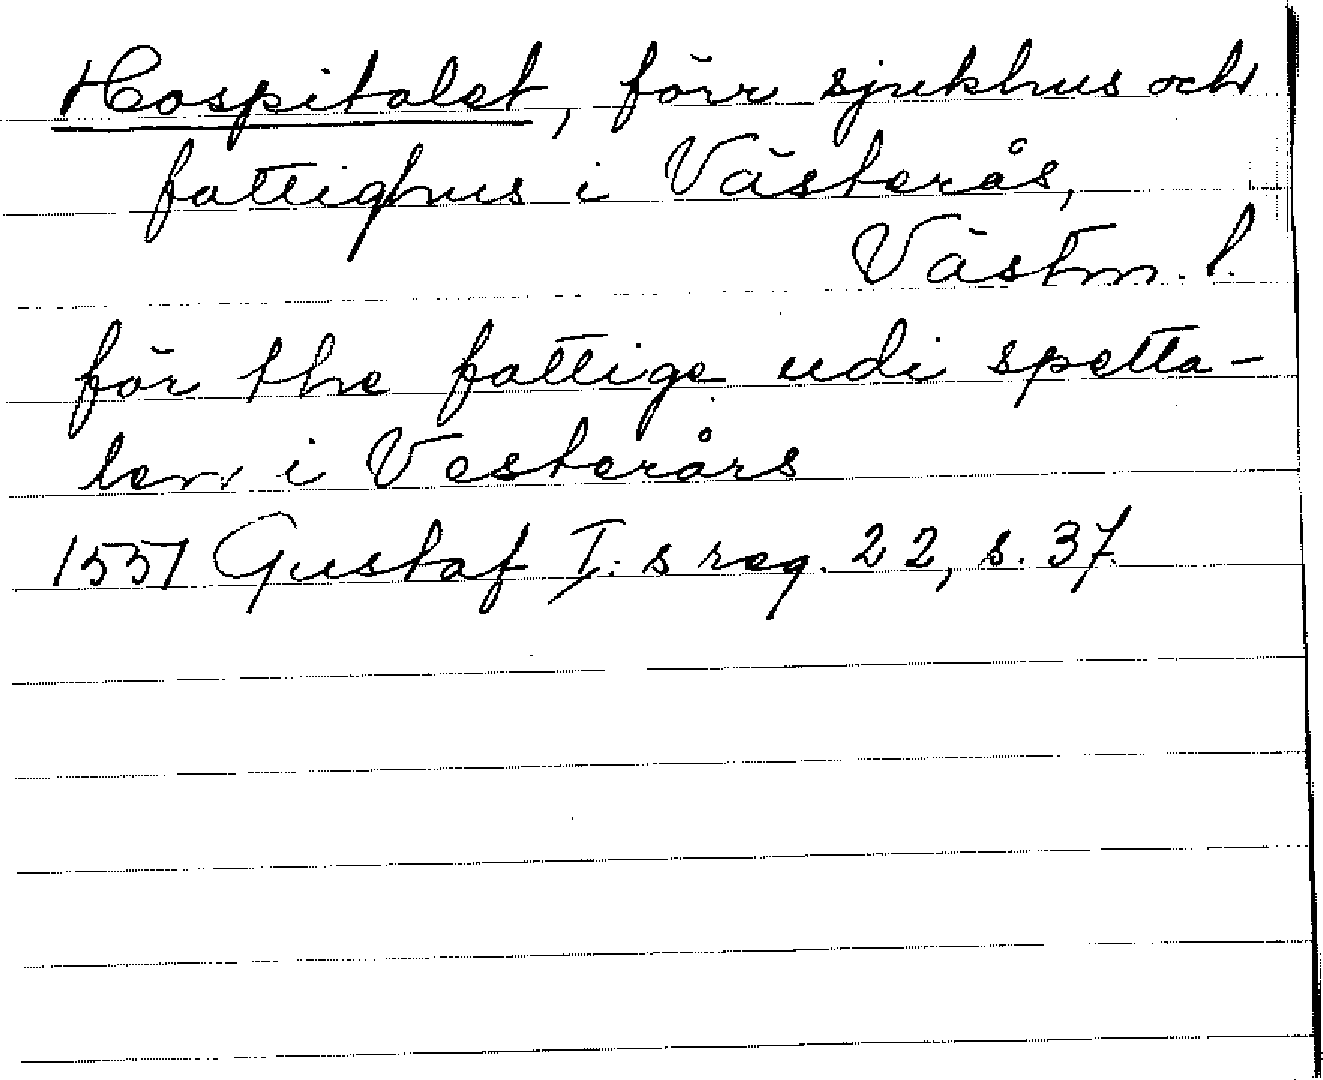 Hospitalet, förr sjukhus och
fattighus i Västerås,
Västm. l.
för the fattige udi spetta-
len i Vesterårs
1551 Gustaf I:s reg. 22, s. 37.